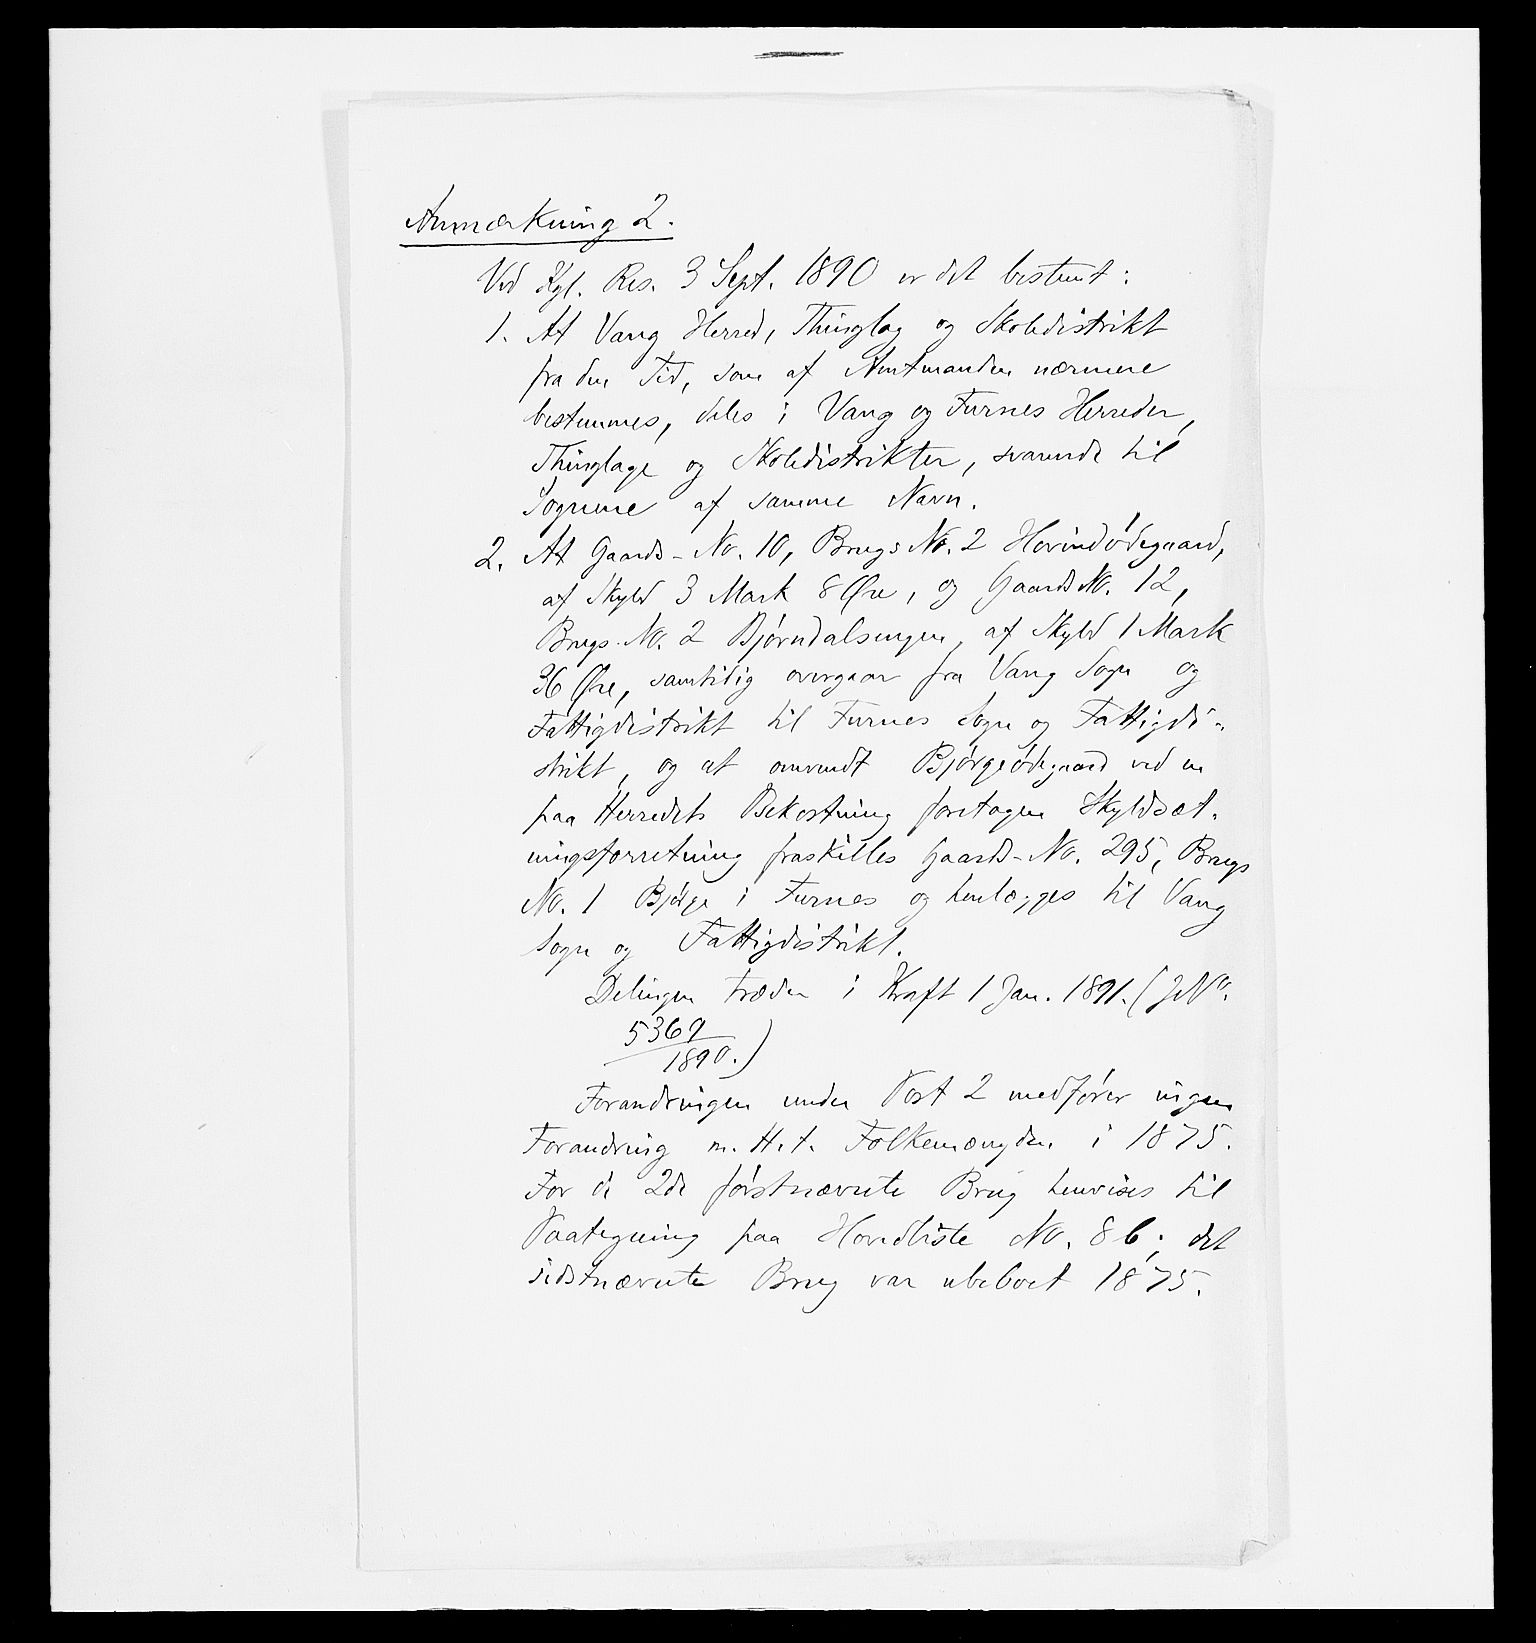 Anmærkning 2.
Ved Kgl. Res. 3 Sept. 1890 er det bestemt:
1. At Vang Herred, Thinglag og Skoledistrikt
fra den Tid, som af Amtmanden nærmere
bestemmes, deles i Vang og Furnes Herreder,
Thinglage og Skoledistrikter, svarende til
Sognene af samme Navn.
2. At Gaards-No. 10, Brugs No. 2 Hovindødegaard,
af Skyld 3 Mark 8 Øre, og Gaards No. 12,
Brugs-No. 2 Bjørndalsengen, af Skyld 1 Mark
36 Øre, samtidig overgaar fra Vang Sogn og
Fattigdistrikt til Furnes Sogn og Fattigdi-
strikt, og at omvendt Bjørgeødegaard ved en
paa Herredets Bekostning foretagen Skyldsæt-
ningsforretning fraskilles Gaards-No. 295, Brugs
No. 1 Bjørge i Furnes og henlægges til Vang
Sogn og Fattigdistrikt.
Delingen træder i Kraft 1 Jan. 1891. (J.No.
5369
1890.)
Forandringen under Post 2 medfører ingen
Forandring m. H. t. Folkemængden i 1875.
For de 2de førstnævnte Brug henvises til
Paategning paa Hovedliste No. 8 b; det
sidstnævnte Brug var ubeboet 1875.